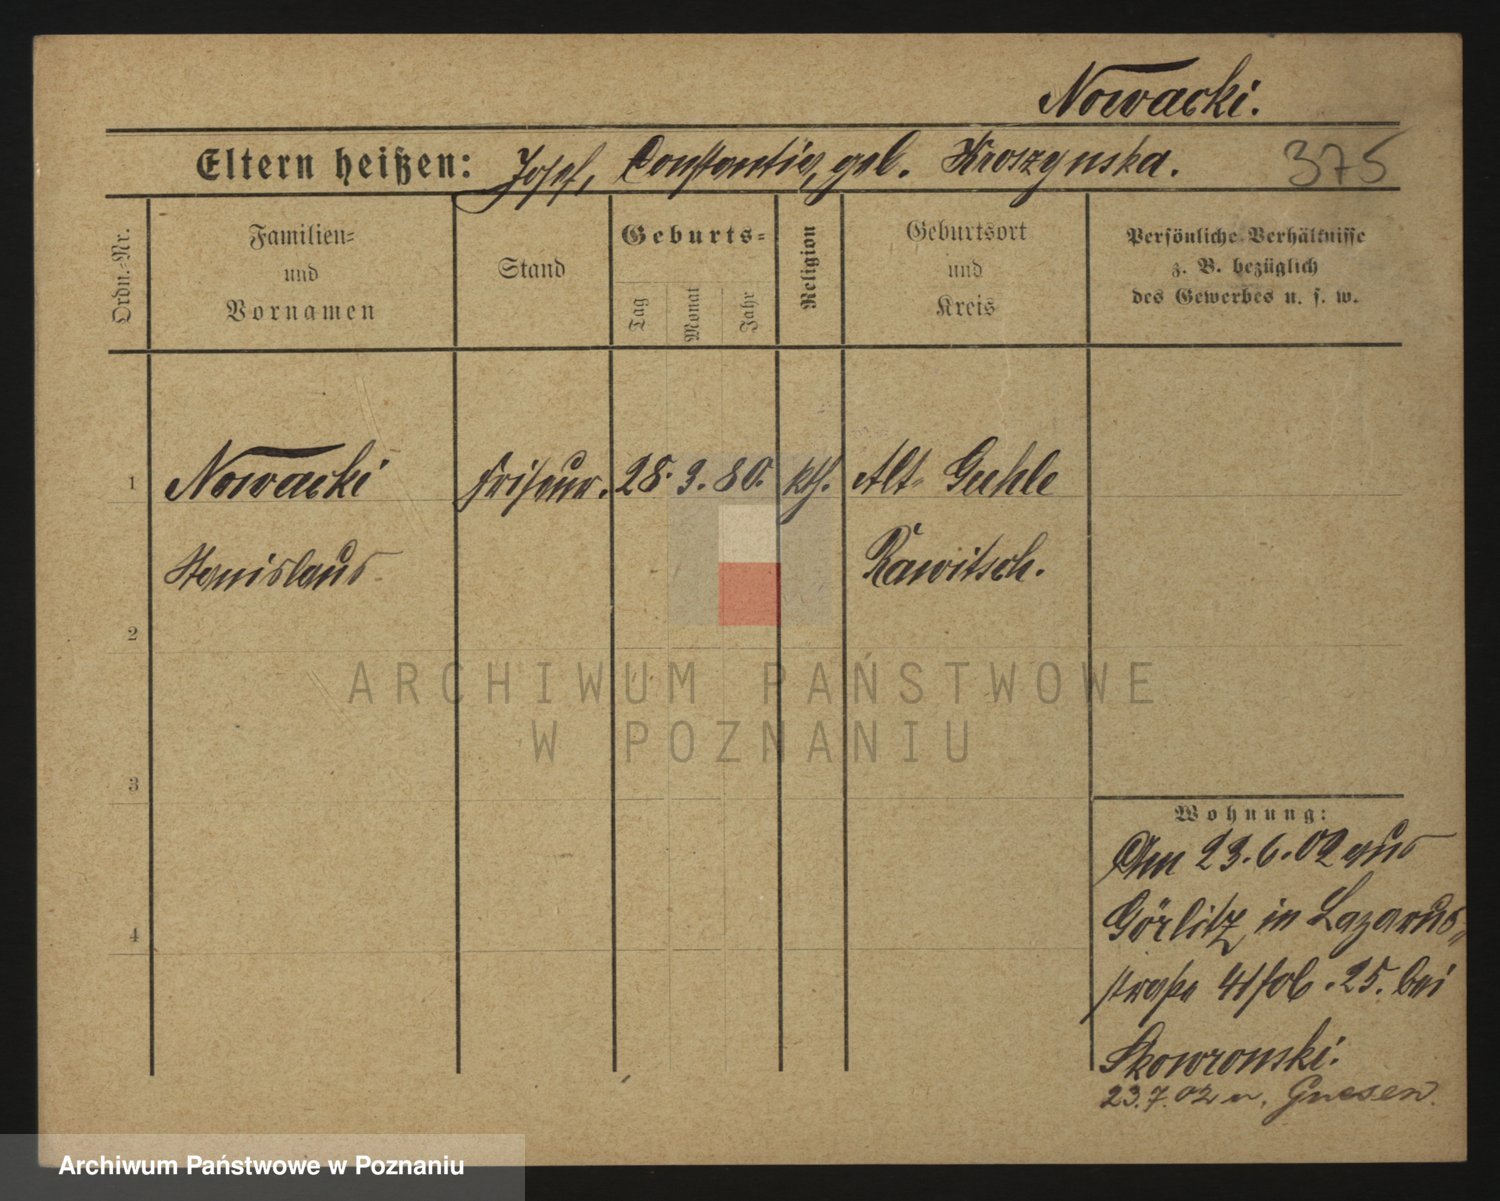 Nowacki.
Eltern heißen: Josef, Constantia, geb. Kroszynska. 375
Ordn.-Nr.
Familien-
und
Vornamen
Stand
Geburts-
Tag
Monat
Jahr
Religion
Geburtsort
und
Kreis
Persönliche Verhältnisse
z. B. bezüglich
des Gewerbes u. s. w.
1 Nowacki Friseur. 28. 3. 80. kth. Alt-Guhle
Stanislaus Rawitsch.
2
ARCHIWUM PAŃSTWOWE
W POZNANIU
3
Wohnung:
Am 23.6.02 aus
Görlitz in Lazarus-
4
straße 25. bei
Skowronski.
23.7.02 n. Gnesen.
Archiwum Państwowe w Poznaniu